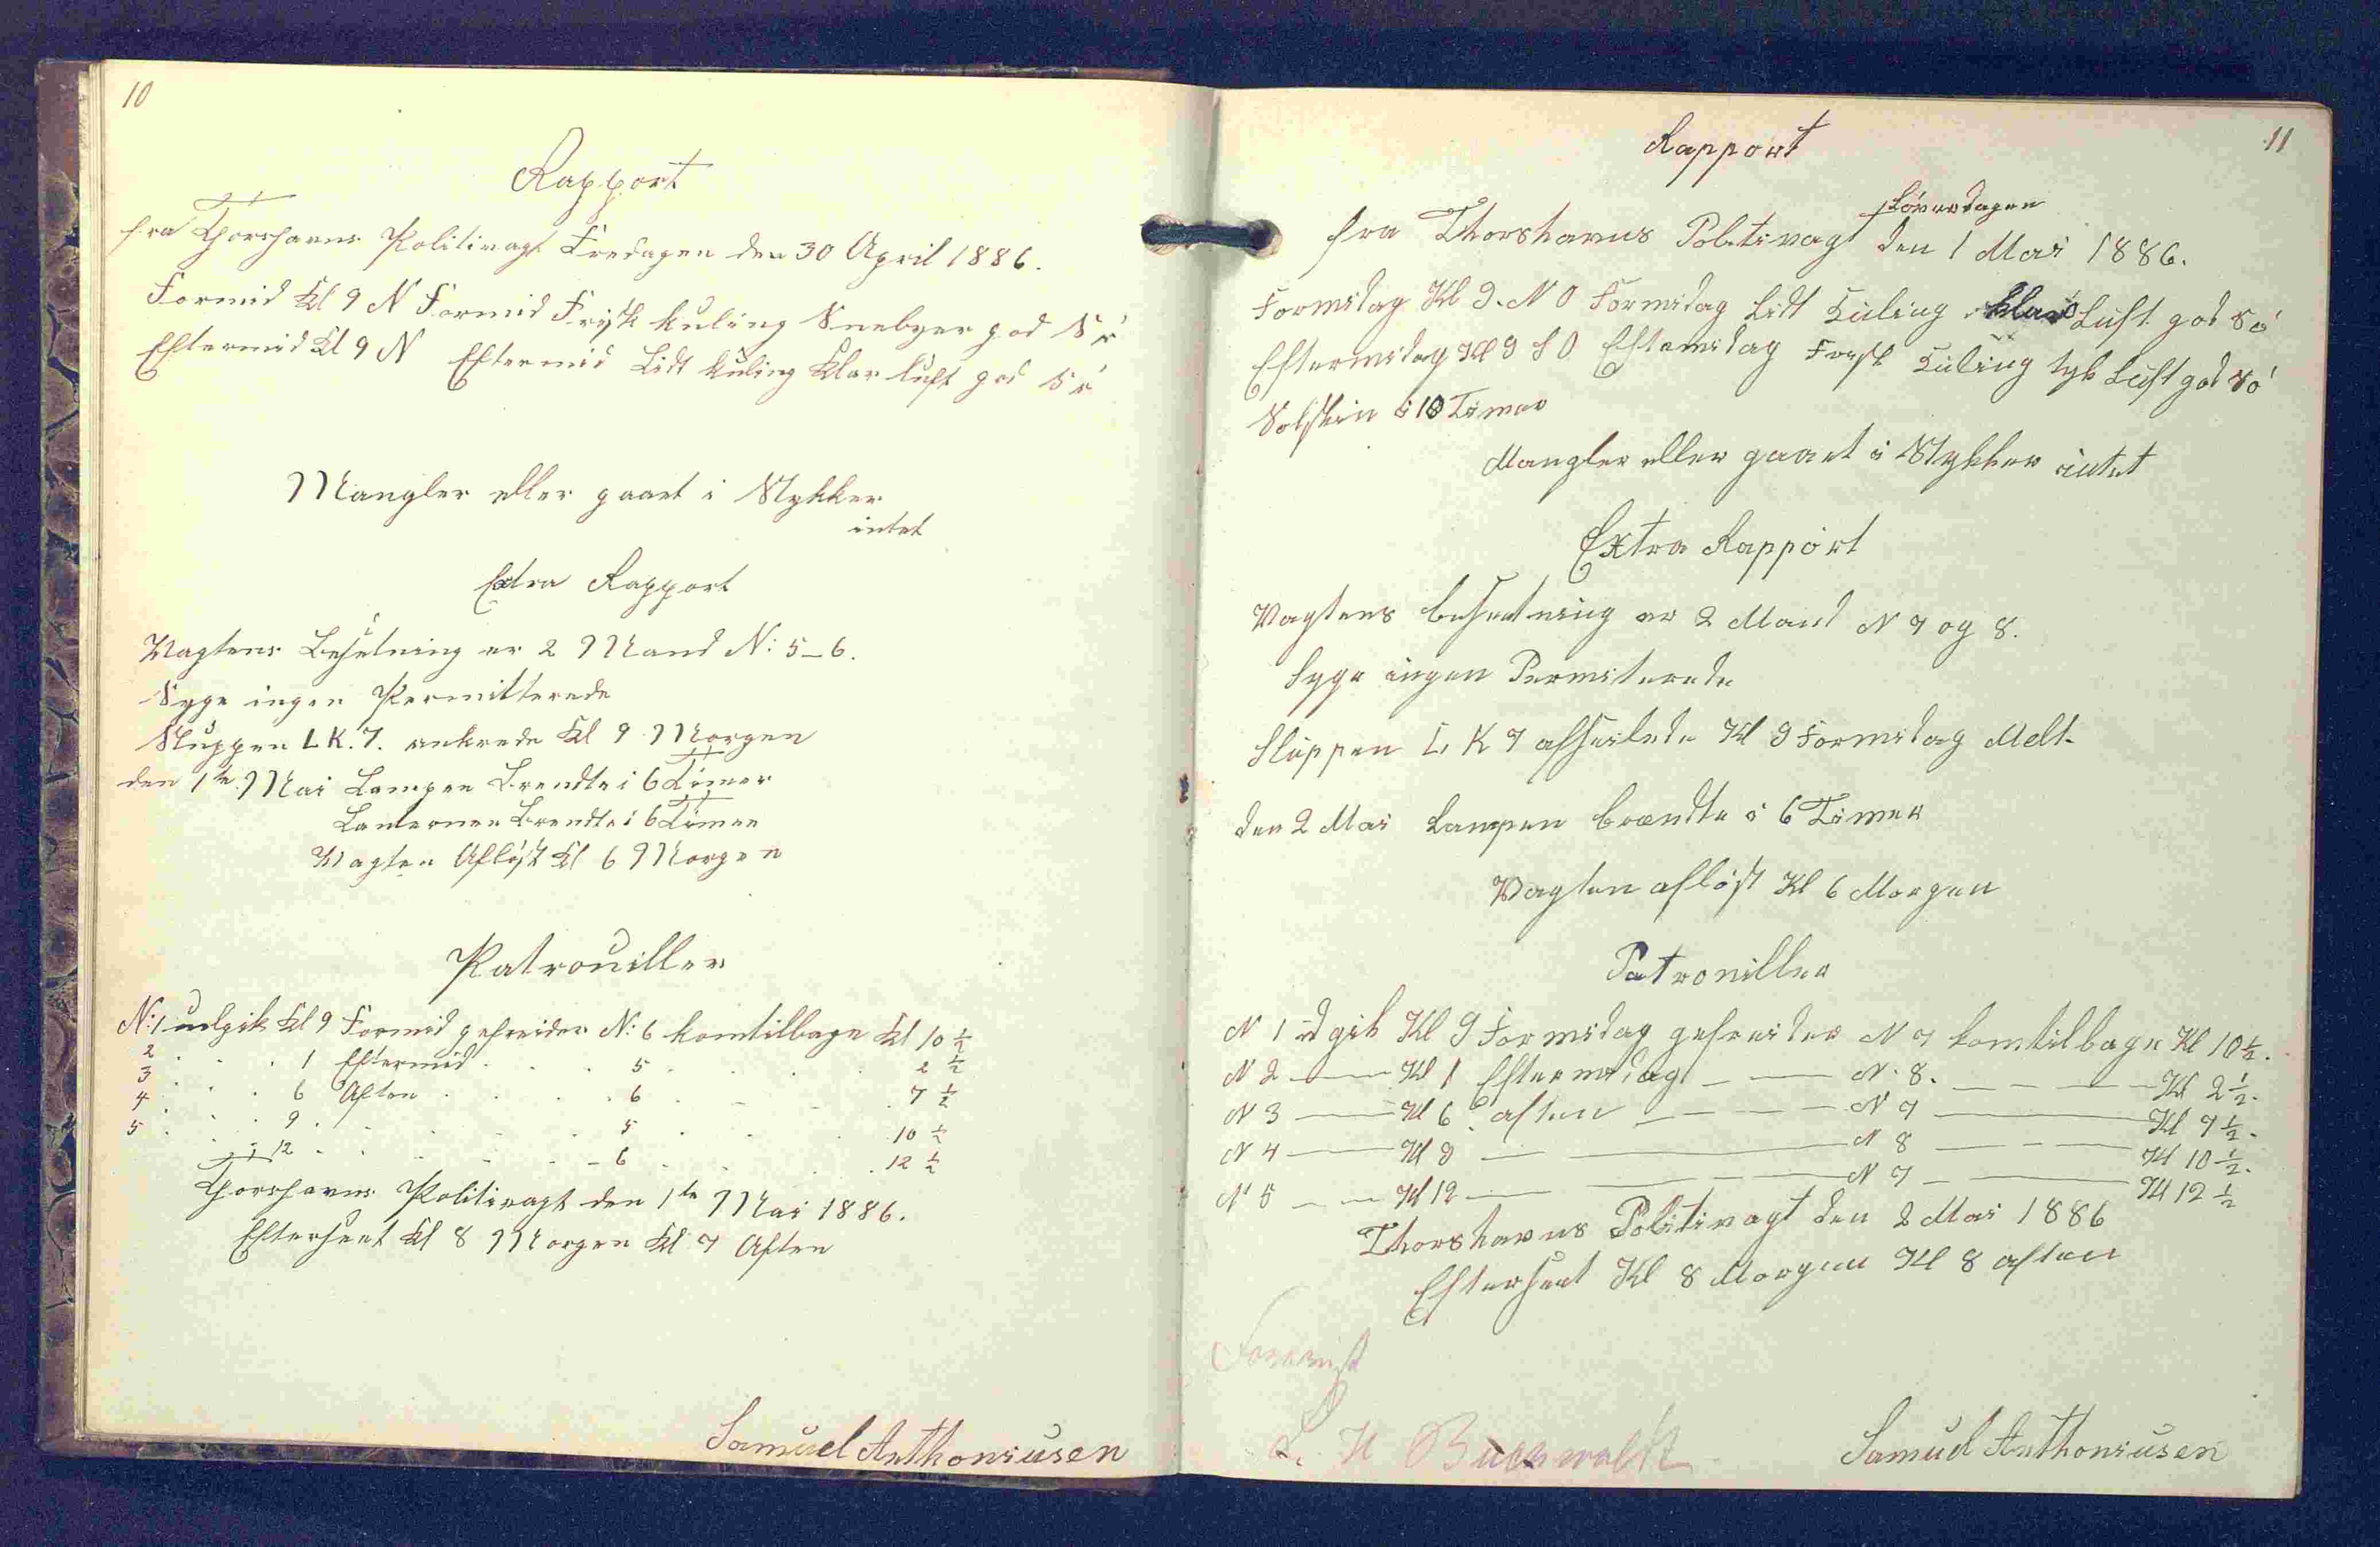 10
Rapport
fra Thorshavns Politivagt Fredagen den 30 April 1886.
Formid Kl 9 N Formid Frisk kuling Snebyer god Sø
Eftermid Kl 9 N Eftermid Lidt kuling Klar luft god Sø
Mangler eller gaaet i Stykker
intet
Extra Rapport
Vagtens Besetning er 2 Mand N: 5-6.
Syge ingen Permitterede
Sluppen L K. 7. ankrede Kl 9 Morgen
den 1te Mai Lampen Brendte i 6 Timer
Lanternen Brendte i 6 Timer
Vagten Afløst Kl 6 Morgen
Patrouiller
N: 1 udgik Kl 9 Formid gefreider N: 6 kom tilbage Kl 10 ½
2 . . . 1 Eftermid . . . 5 . . . 2 ½
3 . . . 6 Aften . . . 6 . . . 7 ½
4 . . . 9 . . . 5 . . . 10 ½
5 . . . 12 . . . 6 . . . 12 ½
Thorshavns Politivagt den 1te Mai 1886.
Efterseet Kl 8 Morgen Kl 7 Aften
Samuel Anthoniusen
11
Rapport
Løverdagen
fra Thorshavns Politivagt den 1 Mai 1886.
Formidag Kl 9. N O Formidag Lidt Kuling klar Luft god Sø
Eftermidag Kl 9 S O Eftemidag Frisk Kuling tyk Luft god Sø
Solskin i 10 Timer
Mangler eller gaaet i Stykker intet
Extra Rapport
Vagtens besætning er 2 Mand N 7 og 8.
Syge ingen Permiterede
Sluppen L. K 7 afseilede Kl 9 Formidag
den 2 Mai Lampen brændte i 6 Timer
Vagten afløst Kl 6 Morgen
Patroniller
N 1 ud gik Kl 9 Formidag gefreider N 7 kom tilbage Kl 10 ½.
N 2 — Kl 1 Eftermidag — N. 8. — Kl 2 ½.
N 3 — Kl 6. aften — N 7 — Kl 7 ½.
N 4 — Kl 9 — N 8 — Kl 10 ½.
N 5 — Kl 12 — N 7 — Kl 12 ½
Thorshavns Politivagt den 2 Mai 1886
Efterseet Kl 8 Morgen Kl 8 aften
Forevist
L. H Buchwaldt
Samuel Anthoniusen